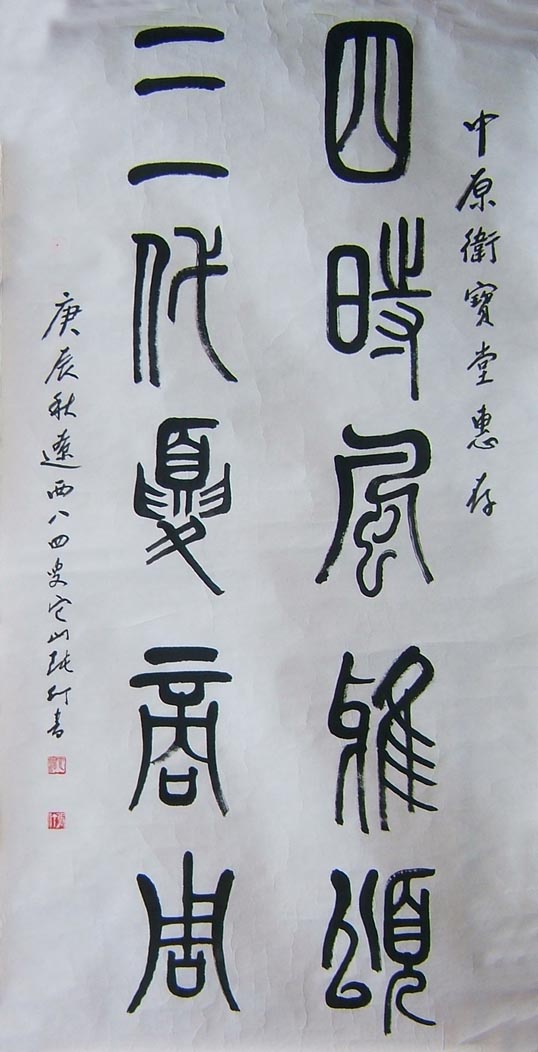 中原衛寶堂惠存
四時風雅頌
三代夏商周
庚辰秋遼西八四叟它山陀行書